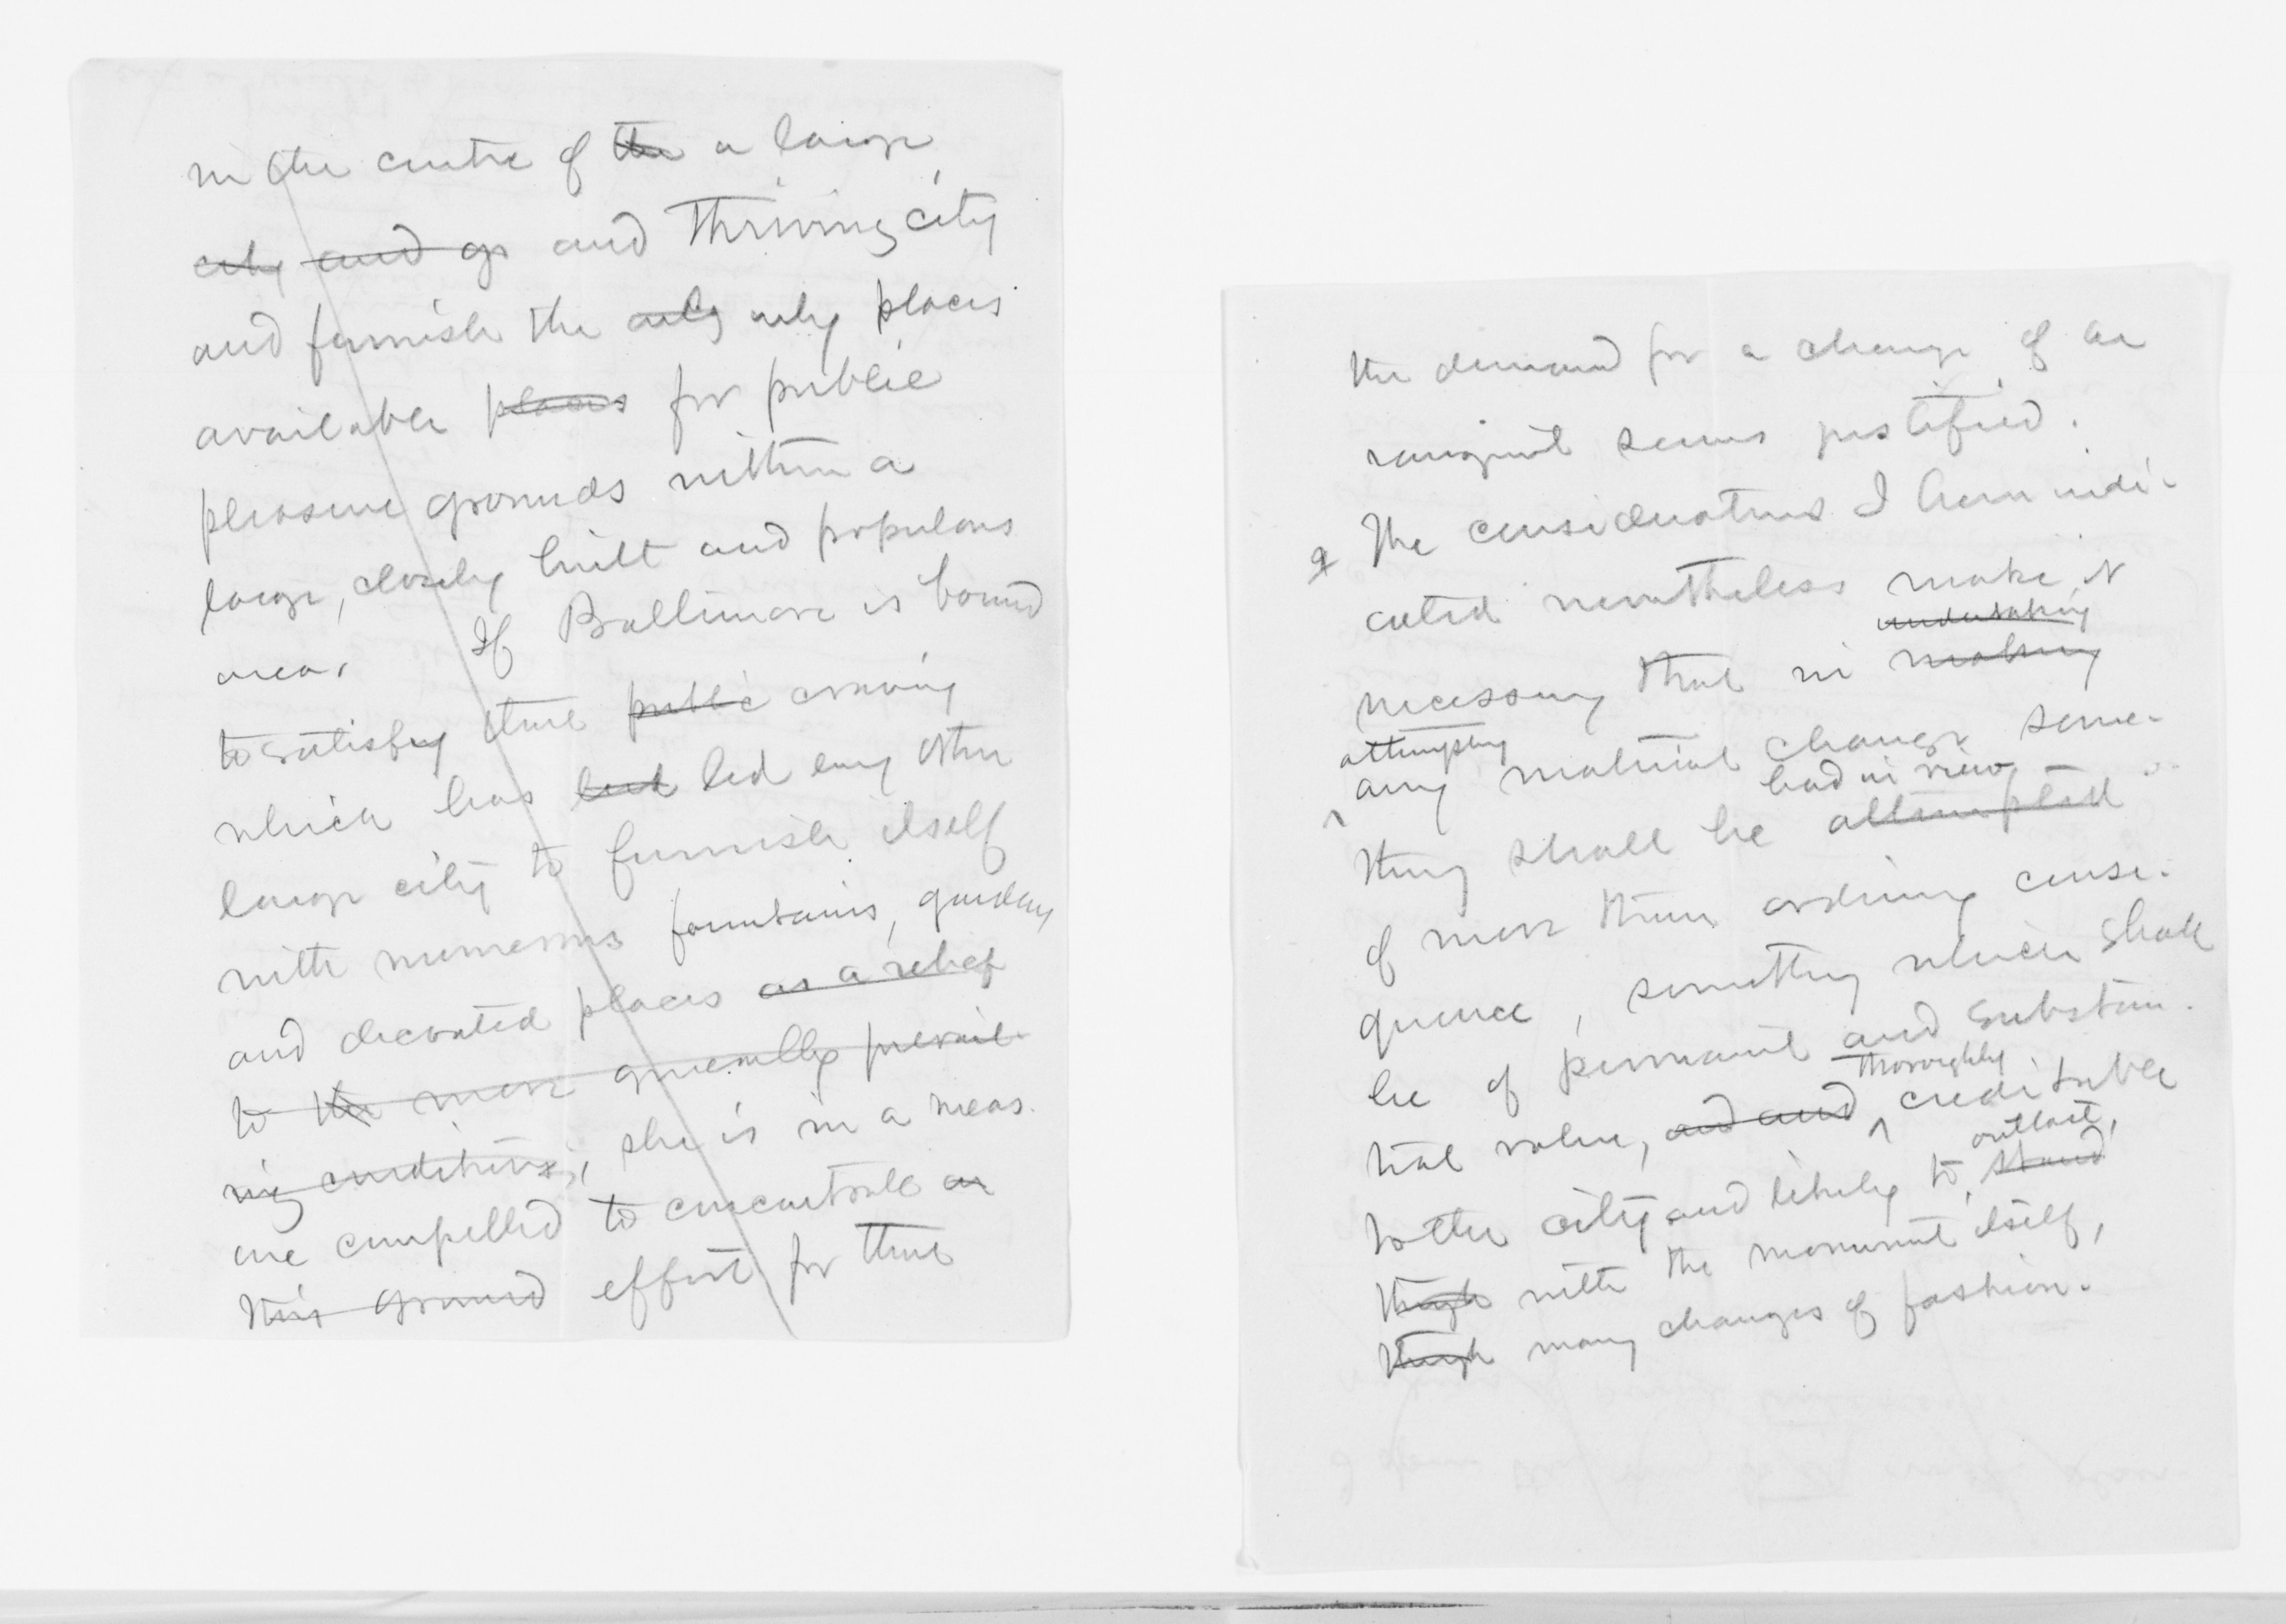 in the centre of the a large
city and go and thriving city
and furnish the only only places
available places for public
pleasure grounds within a
large, closely built and populous
area. If Baltimore is bound
to satisfy that public craving
which has led any other
large city to furnish itself
with numerous fountains, gardens
and decorated places as a relief
to the more generally prevail-
ing conditions, she is in a meas-
ure compelled to concentrate
this ground effort for that
the demand for a change of ar
rangment seems justified.
The considerations I have indi-
cated nevertheless make it
undertaking
necessary that in making
attempting
any material change some-
had in view
thing shall be attempted
of more than ordinary conse-
quence, something which shall
be of permanent and substan-
thoroughly
tial value, and and creditable
outlast,
to the city and likely to stand
though with the monument itself,
though many changes of fashion.